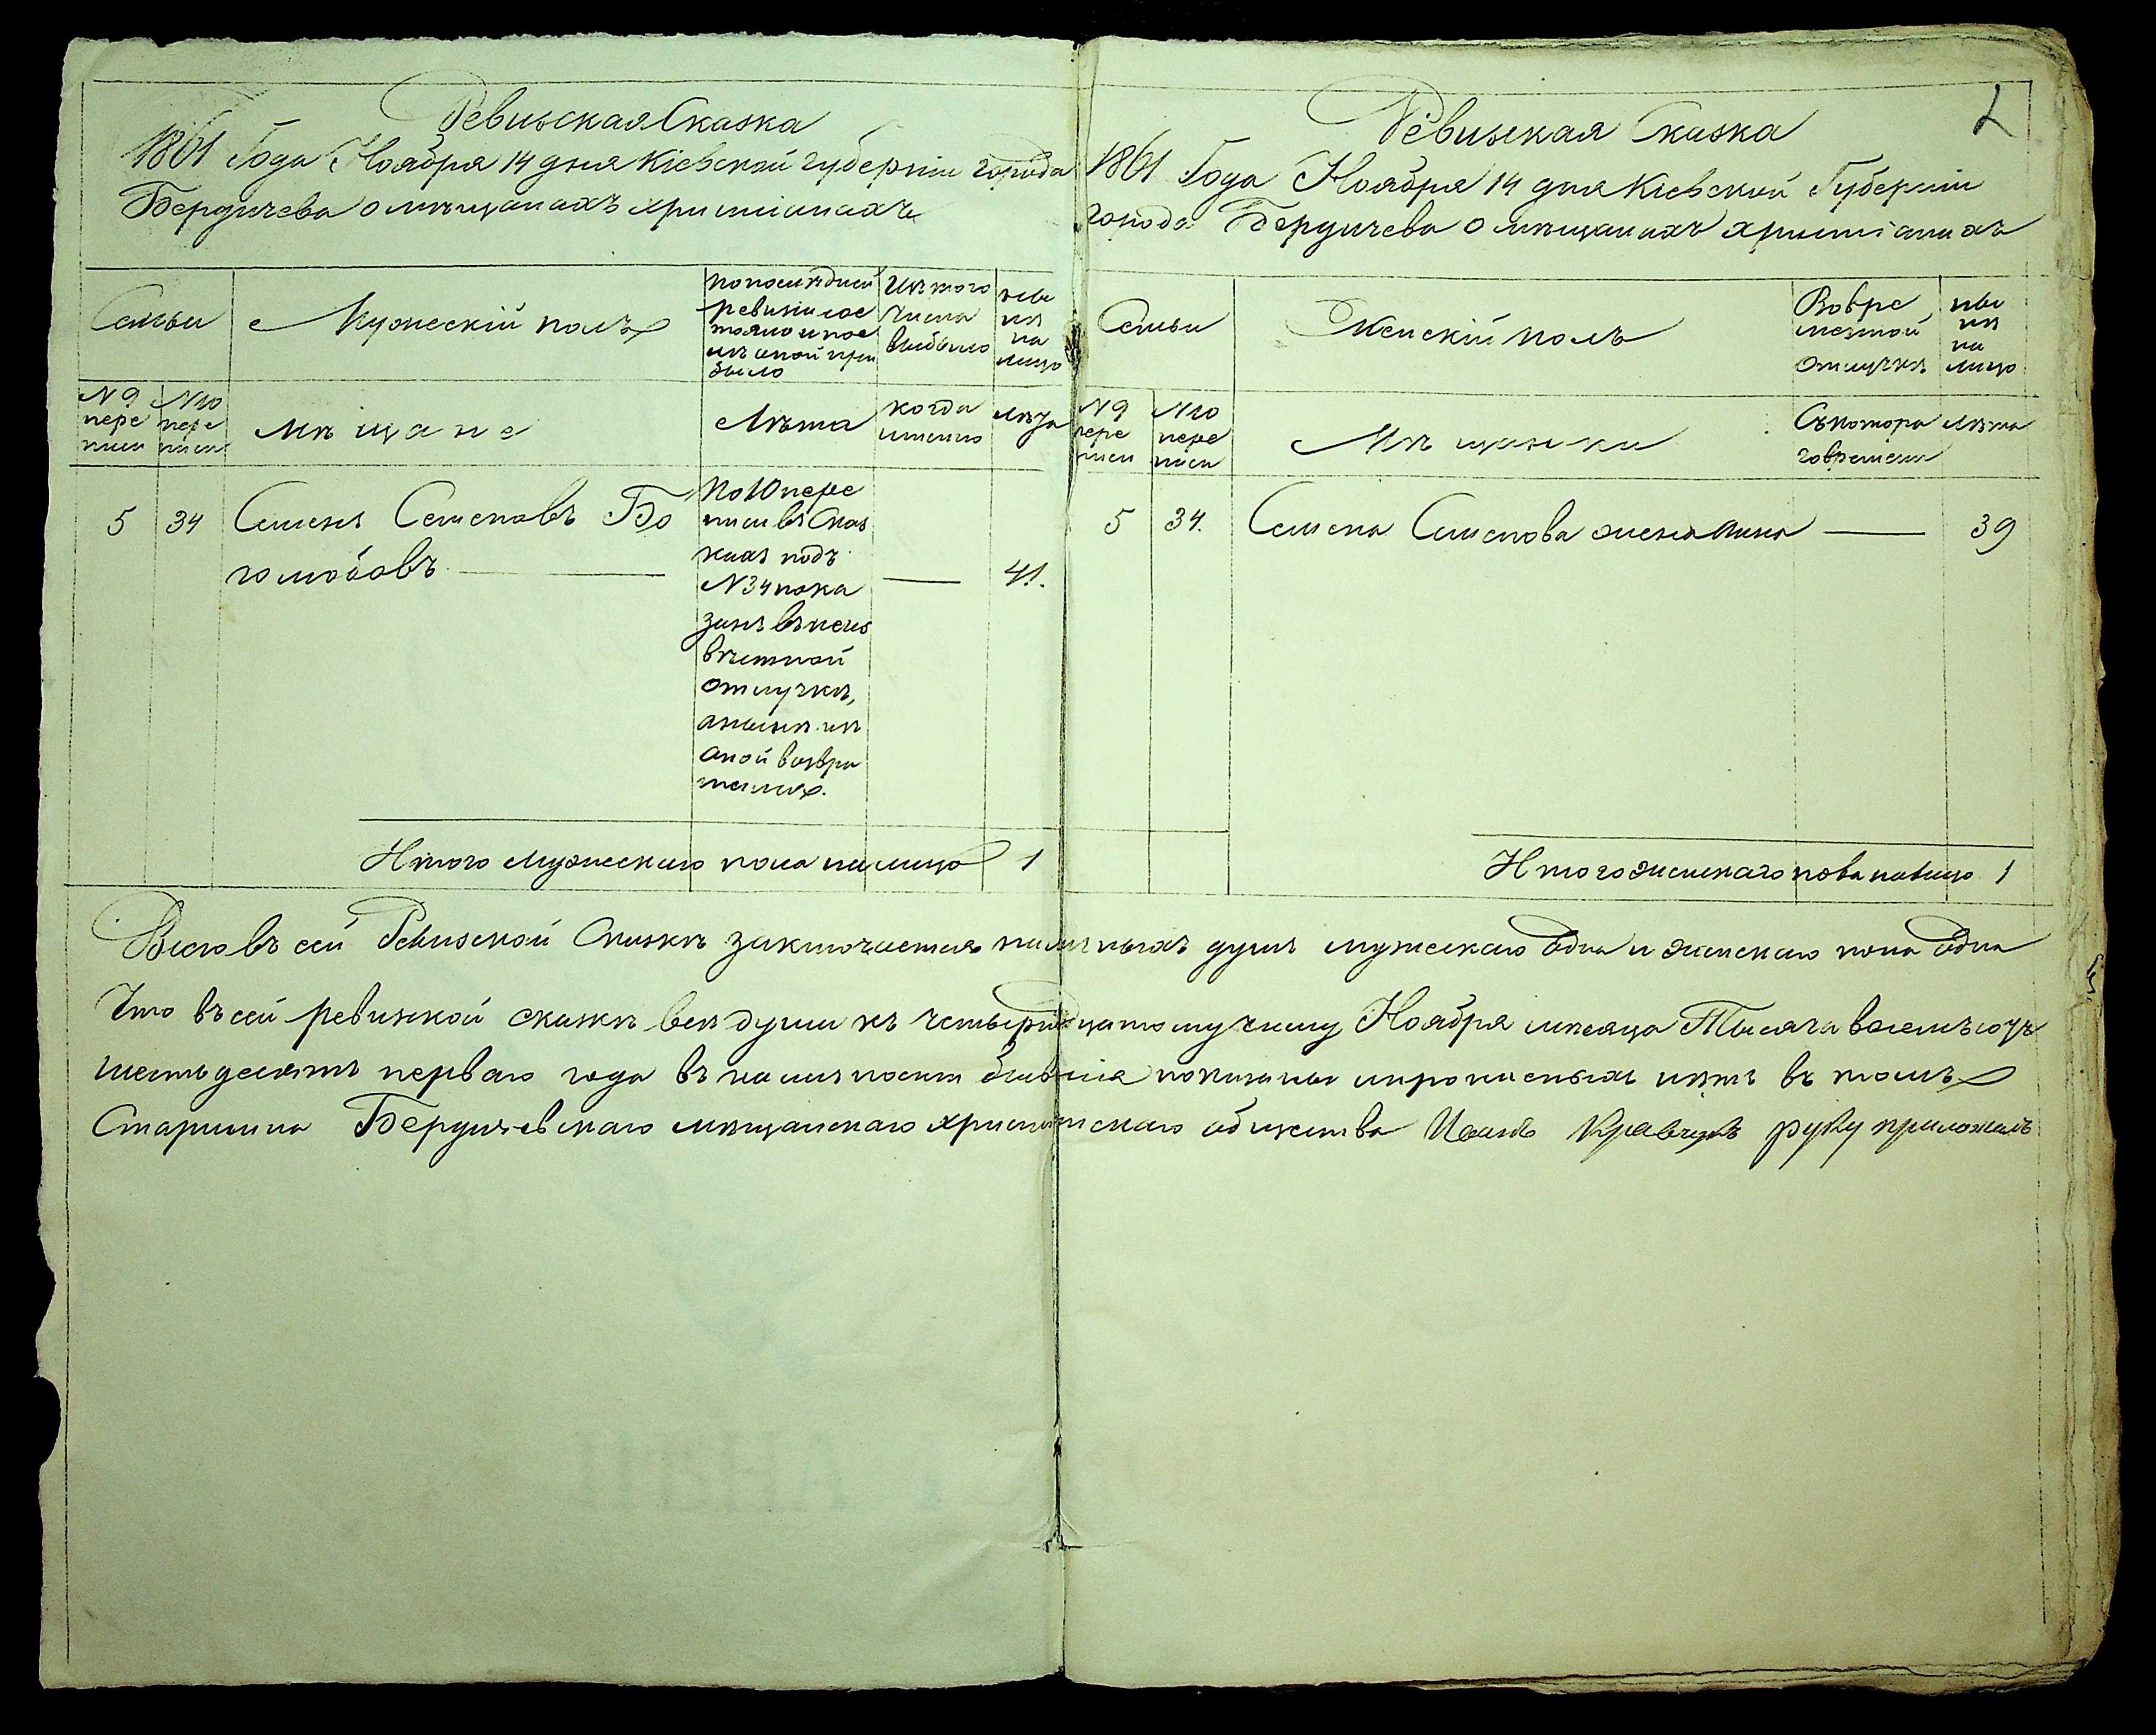 Ревизская Сказка
1861 Года Ноября 14 дня Кіевской губерніи города
Бердичева о мѣщанахъ христіанахъ
Семьи
Мужескій полъ
По последней
ревизіи сос
тояло и пос
лѣ оной при
было
Изъ того
числа
выбыло
ны
нѣ
на
лицо
N 9
пере
писи
N 10
пере
писи
Мѣщане
Лѣта
когда
именно
Лѣта
5 34 Семенъ Семеновъ Бо
голюбовъ
По 10 пере
писи въ Сказ
ках подъ
N 34 пока
занъ въ неиз
вѣстной
отлучкѣ,
а нынѣ изъ
оной возвра
тился.
41.
Итого мужескаго пола на лицо 1
2
Ревизская Сказка
1861 Года Ноября 14 дня Кіевской Губерніи
города Бердичева о мѣщанахъ христіанахъ
Семьи
Женскій полъ
Во вре
менной
отлучкѣ
ны
нѣ
на
лицо
N 9
пере
писи
N 10
пере
писи
Мѣщанки
Съ котора
го времени
Лѣта
5 34. Семена Семенова жена Анна 39
Итого женскаго пола на лицо 1
Всего въ сей Ревизской Сказкѣ заключается наличныхъ душъ мужескаго одна и женскаго пола одна
Что въ сей ревизской сказкѣ всѣ души къ четырнадцатому числу Ноября мѣсяца Тысяча восемьсотъ
шестьдесятъ перваго года въ наличности бывшія показаны и прописныхъ нѣтъ въ томъ
Старшина Бердичевскаго мѣщанскаго христіанскаго общества Иванъ Кравчукъ руку приложилъ